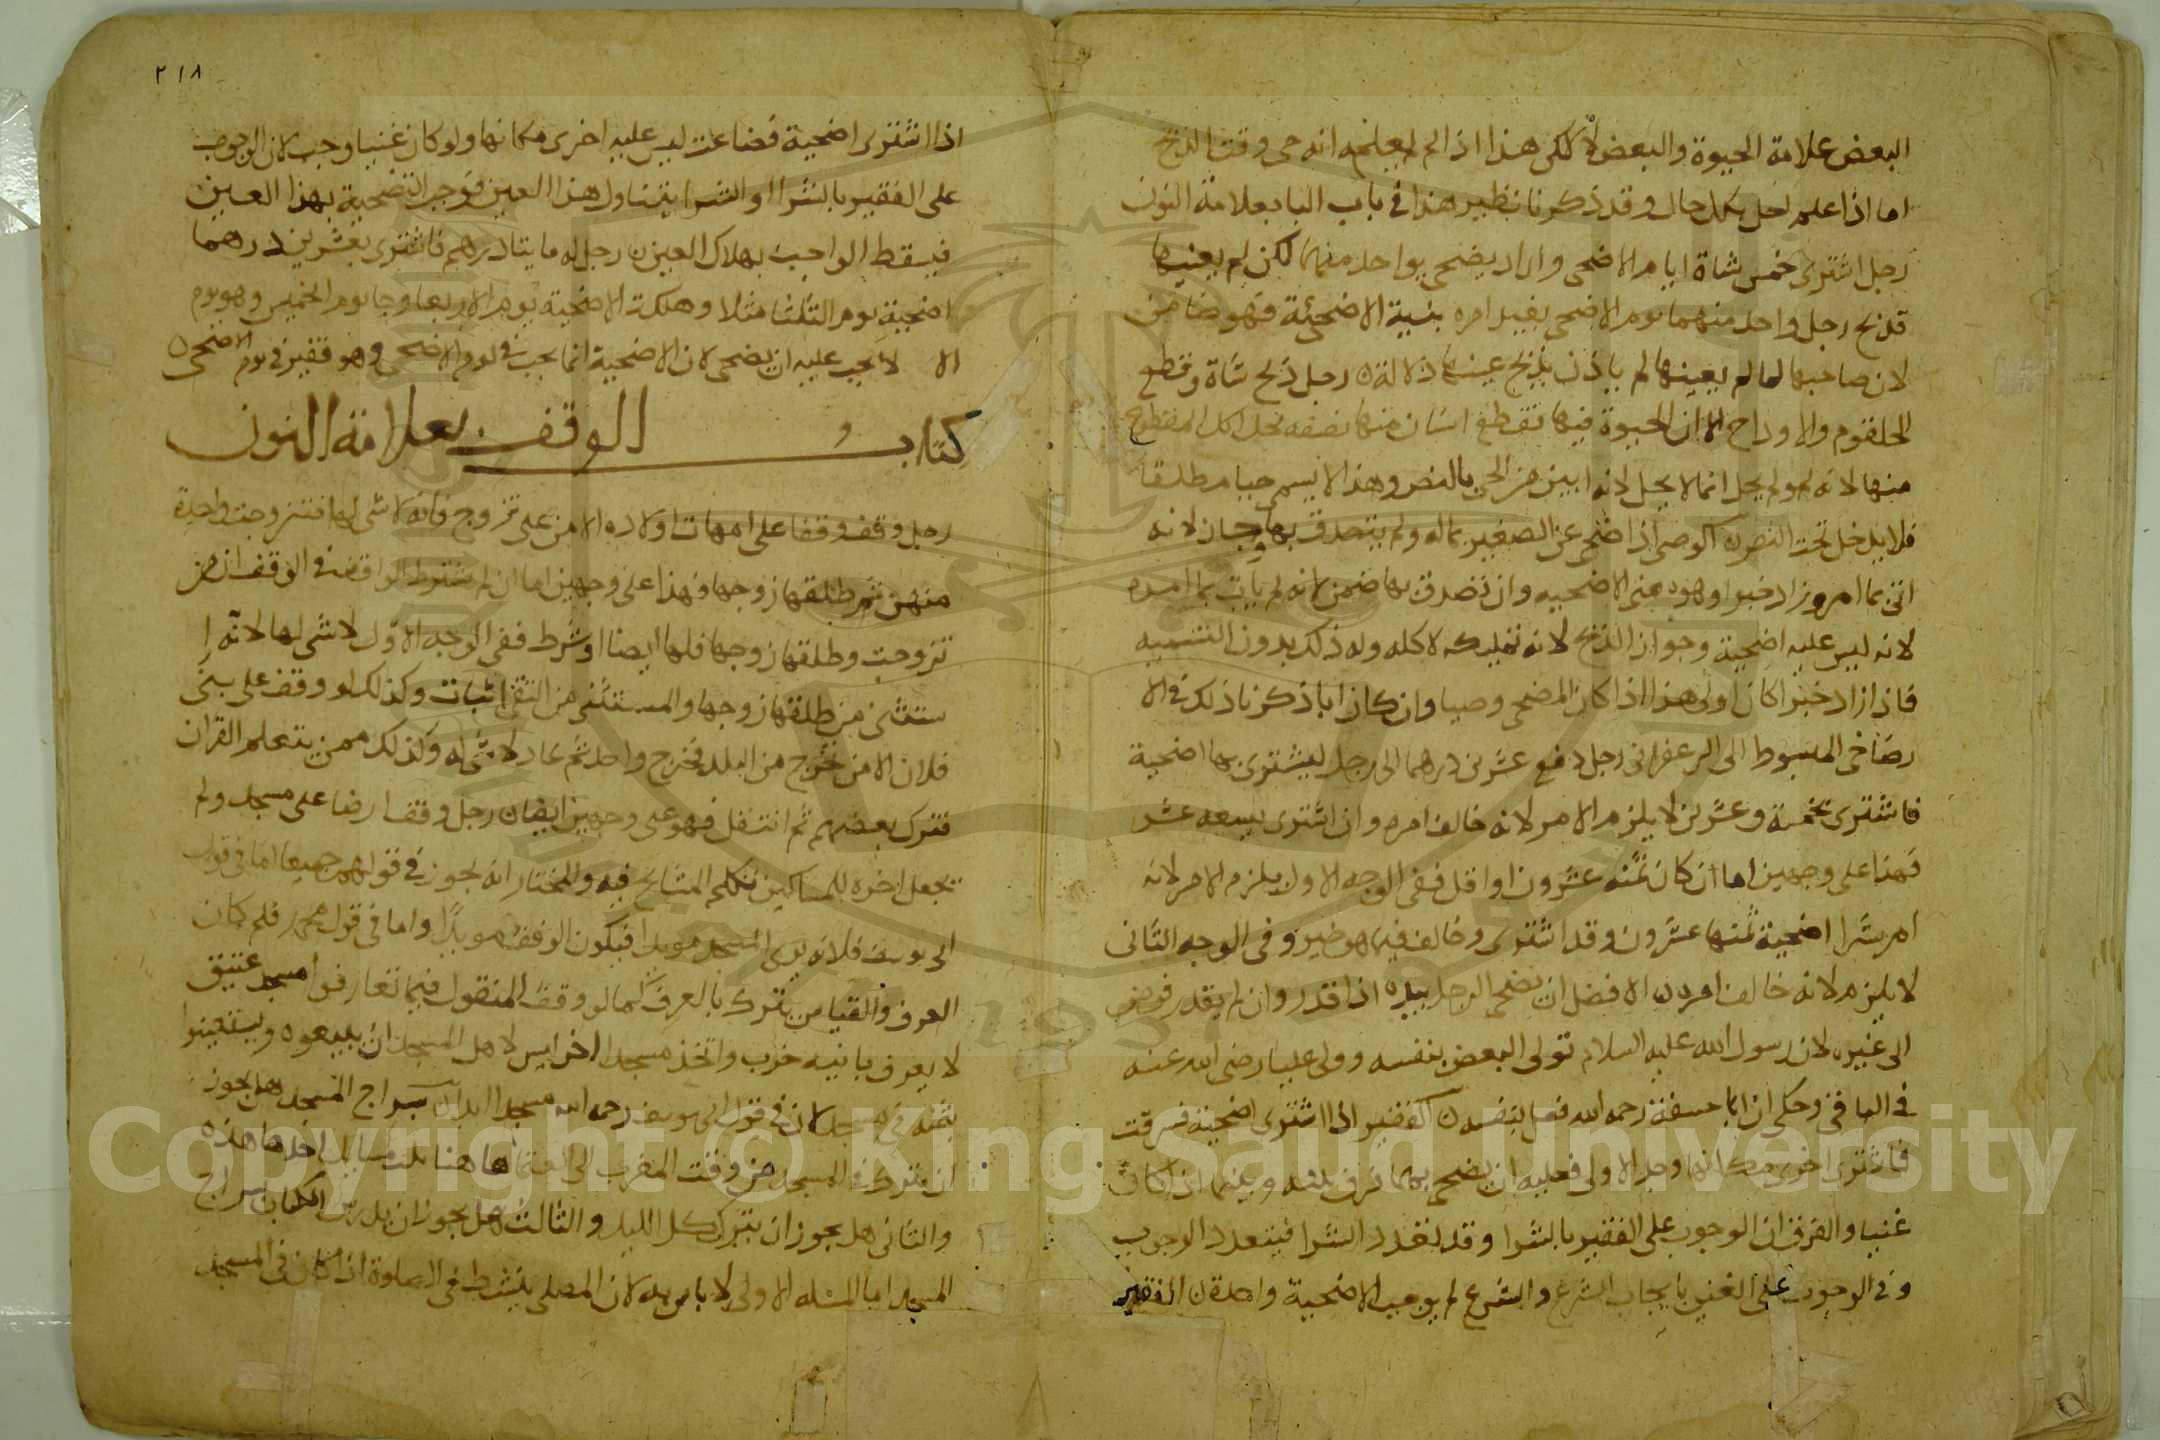 البعض علامة الحيوة والبعض لا لكن هذا اذا لم يعلم انه حي وقت الذبح
اما اذا علم لحل بكل حال وقد ذكرنا نظير هذا في باب البا بعلامة النون
رجل اشترى خمس شاة ايام الاضحى واراد يضحى بواحد منها لكن لم يعينها
فذبح رجل واحد منهما يوم الاضحى بغير امره بنية الاضحية فهو ضامن
لان صاحبها لما لم يعينها لم ياذن بذبح عينها دلالة ه رجل ذبح شاة وقطع
الحلقوم والاوداج الا ان الحيوة فيها فقطع انسان منها بضعة يحل اكل المقطوع
منها لانه لو لم يحل انما لا يحل لانه ابين من الحي بالنص وهذا لا يسمى حيا مطلقا
فلا يدخل تحت النص ه الوصى اذا ضحى عن الصغير بماله ولم يتصدق بها جاز لانه
اتى بما امر وهو معنى الاضحيه وان تصدق بها ضمن لانه لم يات بما امره
لانه ليس عليه اضحية وجواز الذبح لانه تمليكه لاكله وله ذلك بدون التسميه
فاذا ازاد خيرا كان اولى هذا اذا كان المضحى وصيا وان كان ابا ذكرنا ذلك في الا
رضا في المبسوط الى الزعفرانى رجل دفع عشرين درهما الى رجل ليشترى بها اضحية
فاشترى بخمسة وعشرين لا يلزم الامر لانه خالف امره وان اشترى بتسعه عشر
فهذا على وجهين اما ان كان ثمنه عشرون او اقل ففى الوجه الاول يلزم الامر لانه
امر بشرا اضحية ثمنها عشرون وقد اشترى وخالف فيما هو خير وفى الوجه الثانى
لا يلزم لانه خالف امره ه الافضل ان يضحى الرجل بيده اذا قدر وان لم يقدر فوض
الى غيره لان رسول الله عليه السلام تولى البعض بنفسه وولى عليا رضى الله عنه
في الباقى وحكى ان ابا حنيفة رحمه الله فعل بنفسه ه الفقير اذا اشترى اضحية فسرقت
فاشترى اخرى مكانها وجد الاولى فعليه ان يضحى بهما فرق بينه وبينما اذا كان
غنيا والفرق ان الوجوب على الفقير بالشرا وقد تعدد الشرا فيتعدد الوجوب
وفى الوجوب على الغنى بايجاب الشرع والشرع لم يوجب الاضحية واحدة ه الفقير
٢١٨
اذا اشترى اضحية فضاعت ليس عليه اخرى مكانها ولو كان غنيا وجب لان الوجوب
على الفقير بالشرا والشرا يتناول هذا العين فوجب التضحية بهذا العين
فيسقط الواجب بهلاك العين ه رجل له مايتا درهم فاشترى بعشرين درهما
اضحية يوم الثلثا مثلا وهلكت الاضحية يوم الاربعا وجا يوم الخميس وهو يوم
الا لا يجب عليه ان يضحى لان الاضحية انما يجب في يوم الاضحى وهو فقير في يوم الاضحى ه
كتاب الوقف بعلامة النون
رجل وقف وقفا على امهات اولاده الا من على تزوج فانه لا شى لها فتزوجت واحدة
منهن ثم طلقها زوجها فهذا على وجهين اما ان لم يشترط الواقف في الوقف ان من
تزوجت وطلقها زوجها فلها ايضا او شرط ففى الوجه الاول لا شى لها لانه ا
ستثنى من طلقها زوجها والمستثنى من النفى اثبات وكذلك لو وقف على بنى
فلان الا من خرج من البلد فخرج واحد ثم عاد لا شى له وكذلك ممن يتعلم القران
فترك بعضهم ثم انتقل فهو على وجهين ايضا ه رجل وقف ارضا على مسجد ولم
تجعل اخره للمساكين تكلم المشايخ فيه والمختار انه يجوز في قولهم جميعا اما في قول
ابى يوسف فلانه يرى المسجد مويدا فيكون الوقف مويدا واما في قول محمد فلم كان
العرف والقياس يترك بالعرف كما لو وقف المنقول فيما تعارفوا مسجد عتيق
لا يعرف بانيه خرب واتخذ مسجدا اخر ليس لاهل المسجد ان يبيعوه ويستعينوا
بثمنه في مسجد لان في قول ابى يوسف رحمه الله مسجد ابدا ه سراج المسجد هل يجوز
ان يترك في المسجد من وقت المغرب الى العتمة ها هنا ثلث مسايل احدها هذه
والثانى هل يجوز ان يترك كل الليل والثالث هل يجوز ان يدرس الكتاب بسراج
المسجد اما المسئله الاولى لا باس به لان المصلى ينشط في الصلوة اذا كان في المسجد
Copyright © King Saud University